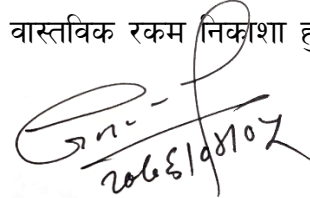 वास्तविक रकम निकाशा हु
२०७६।०४।०५